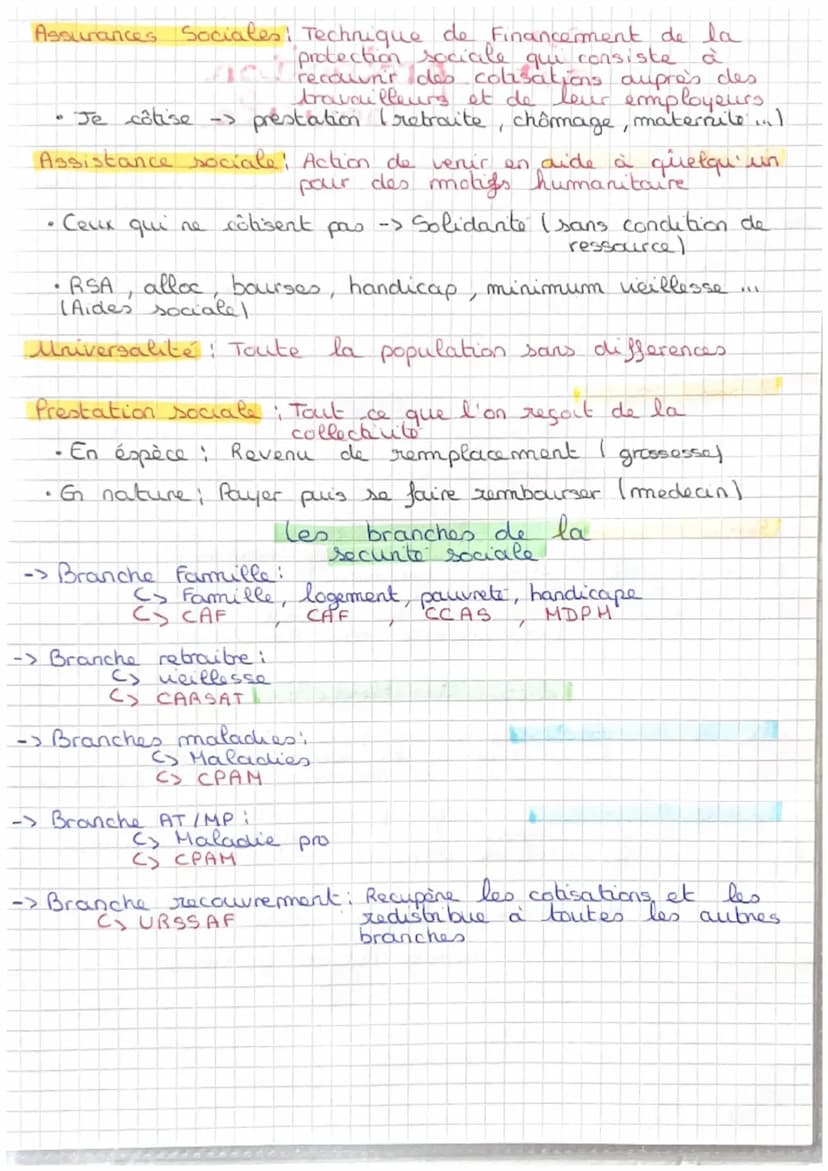 Assurances Sociales : Technique de Financement de la
protection sociale qui consiste à
recouvrir des cotisations auprès des
travailleurs et de leur employeurs
• Je côtise -> prestation (retraite, chômage, maternité ...)
Assistance sociale : Action de venir en aide à quelqu'un
pour des motifs humanitaire
• Ceux qui ne côtisent pas -> Solidarité (sans condition de
ressource)
• RSA, alloc, bourses, handicap, minimum vieillesse ...
(Aides sociale)
Universalité : Toute la population sans differences
Prestation sociale : Tout ce que l'on reçoit de la
collectivité
• En éspèce : Revenu de remplacement (grossesse)
• En nature : Payer puis se faire rembourser (medecin)
Les branches de la
securité sociale
-> Branche Famille :
↳ Famille, logement, pauvreté, handicape
↳ CAF, CAF, CCAS, MDPH
-> Branche retraitre :
↳ vieillesse
↳ CARSAT
-> Branches maladies :
↳ Maladies
↳ CPAM
-> Branche AT/MP :
↳ Maladie pro
↳ CPAM
-> Branche recouvrement : Recupère les cotisations et les
↳ URSSAF redistribue à toutes les autres
branches